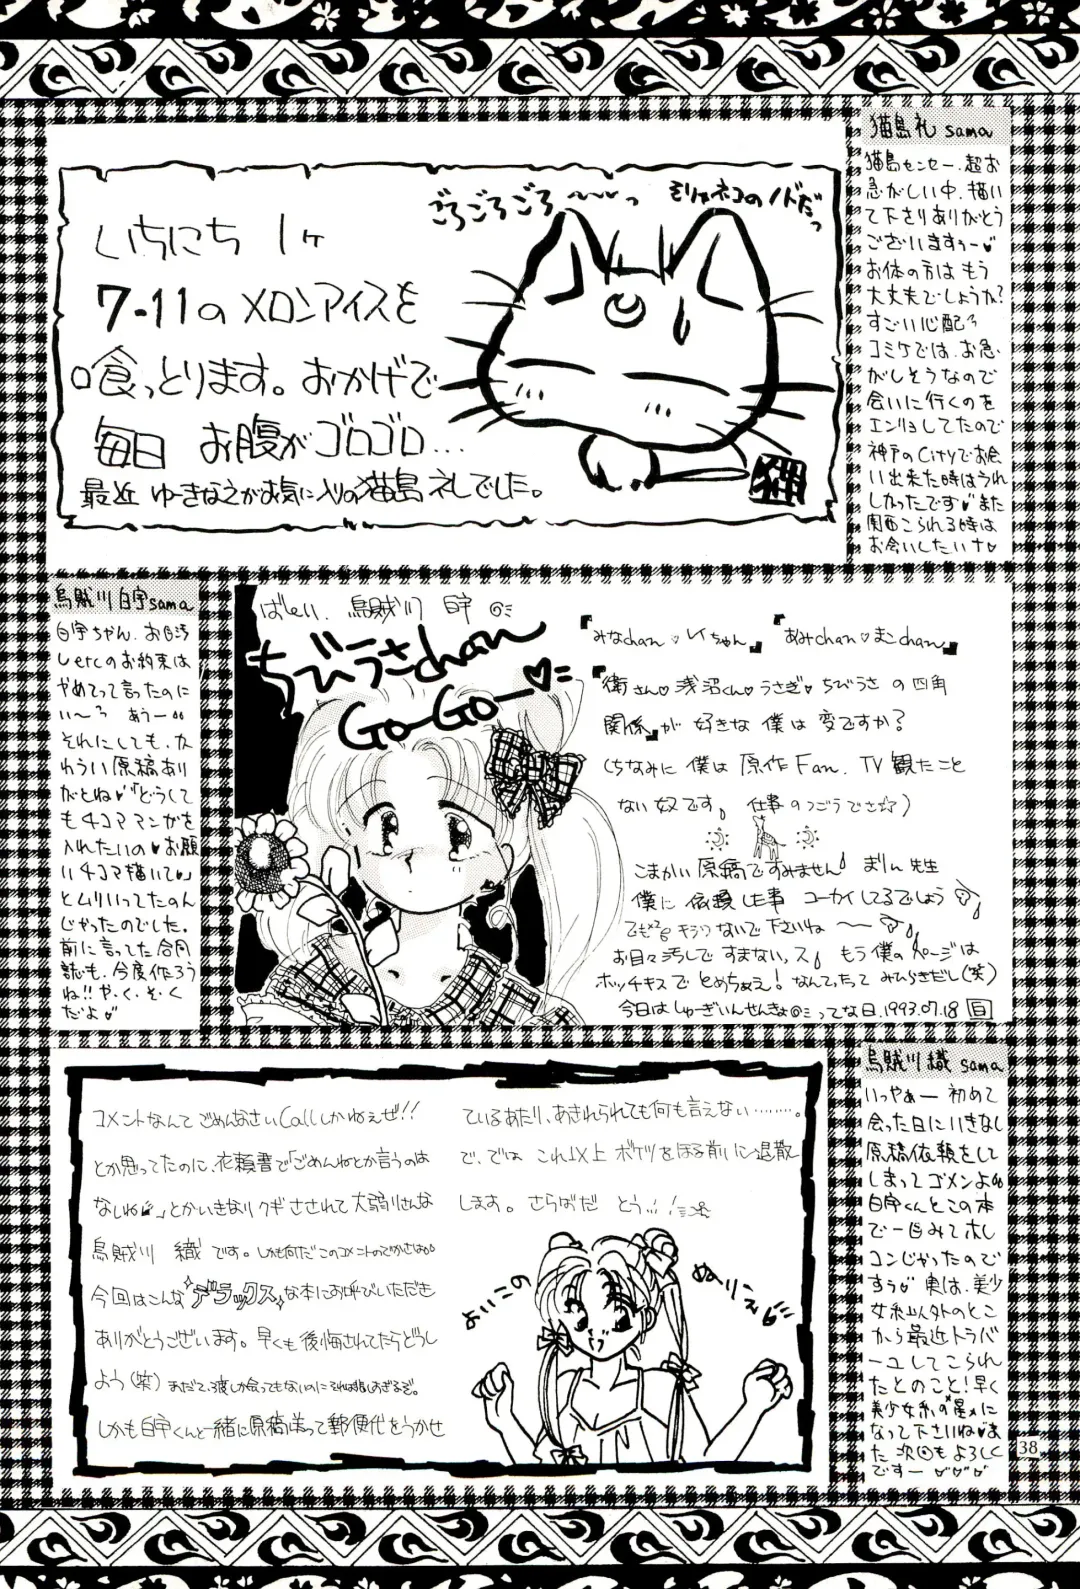 猫島礼 sama
猫島センセー、超お
急がしい中、描い
て下さりありがとう
ございますぅー♡
お体の方はもう
大丈夫でしょうか?
すごい心配
コミケでは、お急
がしそうなので
会いに行くのを
エンリョしてたので
神戸のCityでお会
い出来た時はうれ
しかったです♡また
関西こられる時は
お会いしたいナ♡
ごろごろごろ〜
いちにち 1ヶ
7-11の メロンアイスを
喰っとります。おかげで
毎日 お腹がゴロゴロ…
最近 ゆーきなえがお気に入りの猫島 礼でした。
猫
烏賊川 白宇 sama
白宇ちゃん、お白汚
しetcのお約束は
やめてって言ったのに
い〜 あうー
それにしても、か
わうい原稿あり
がとね♡「どうして
も4コママンガを
入れたいの♥お願
い4コマ描いて♡」
とムリいってたのん
じゃったのでした。
前に言ってた合同
誌も、今度作ろう
ね!!や・く・そ・く
だよ♡
ばーい、烏賊川 白宇
ちびうさchan
Go-Go-♡
『みなchan♡レイちゃん』 『あみchan♡まこchan』
『衛さん♡浅沼くん♡うさぎ♡ちびうさ の四角
関係』が 好きな 僕は 変ですか?
(ちなみに 僕は 原作Fan. TV 観たこと
ない奴です。 仕事 のつごうでさァ)
こまかい原稿ですみません まりん 先生
僕に 依頼した事 コーカイしてるでしょう
でも キラわないで下さいね 〜
お目々汚しで すまないっス もう 僕の ページは
ホッチキスで とめちゃえ! なんてったって みひらきだし(笑)
今日は しゅーぎいんせんきょ ってな日、1993.07.18 日
烏賊川 織 sama
いっやぁー 初めて
会った日にいきなし
原稿依頼をして
しまって ゴメンよ
白宇くんとこの本
で一目みて ホレ
コンじゃったので
すぅ♡ 実は、美少
女系以外のとこ
から最近トラバ
ーユしてこられ
たとのこと!早く
美少女系の"星"に
なって下さいね♡ま
た 次回も よろしく
ですー ♡♡♡
コメントなんて ごめんなさいCallしかねぇぜ!!
とか思ってたのに、依頼書で「ごめんねとか言うのは
なしね」とかいきなり クギ さされて 大弱りさんな
烏賊川 織 です。しかも何だこのコメントのでかさは
今回はこんな デラックス な本にお呼びいただき
ありがとうございます。早くも 後悔されてたらどうし
よう(笑) まだで、一度しか会ってもないのに それは悲しすぎるぞ。
しかも 白宇くんと一緒に原稿送って 郵便代をうかせ
ているあたり、あきれられても何も言えない………。
で、では これ以上 ボケツをほる前に退散
します。 さらばだ とうっ
よいこの
ぬりえ
38